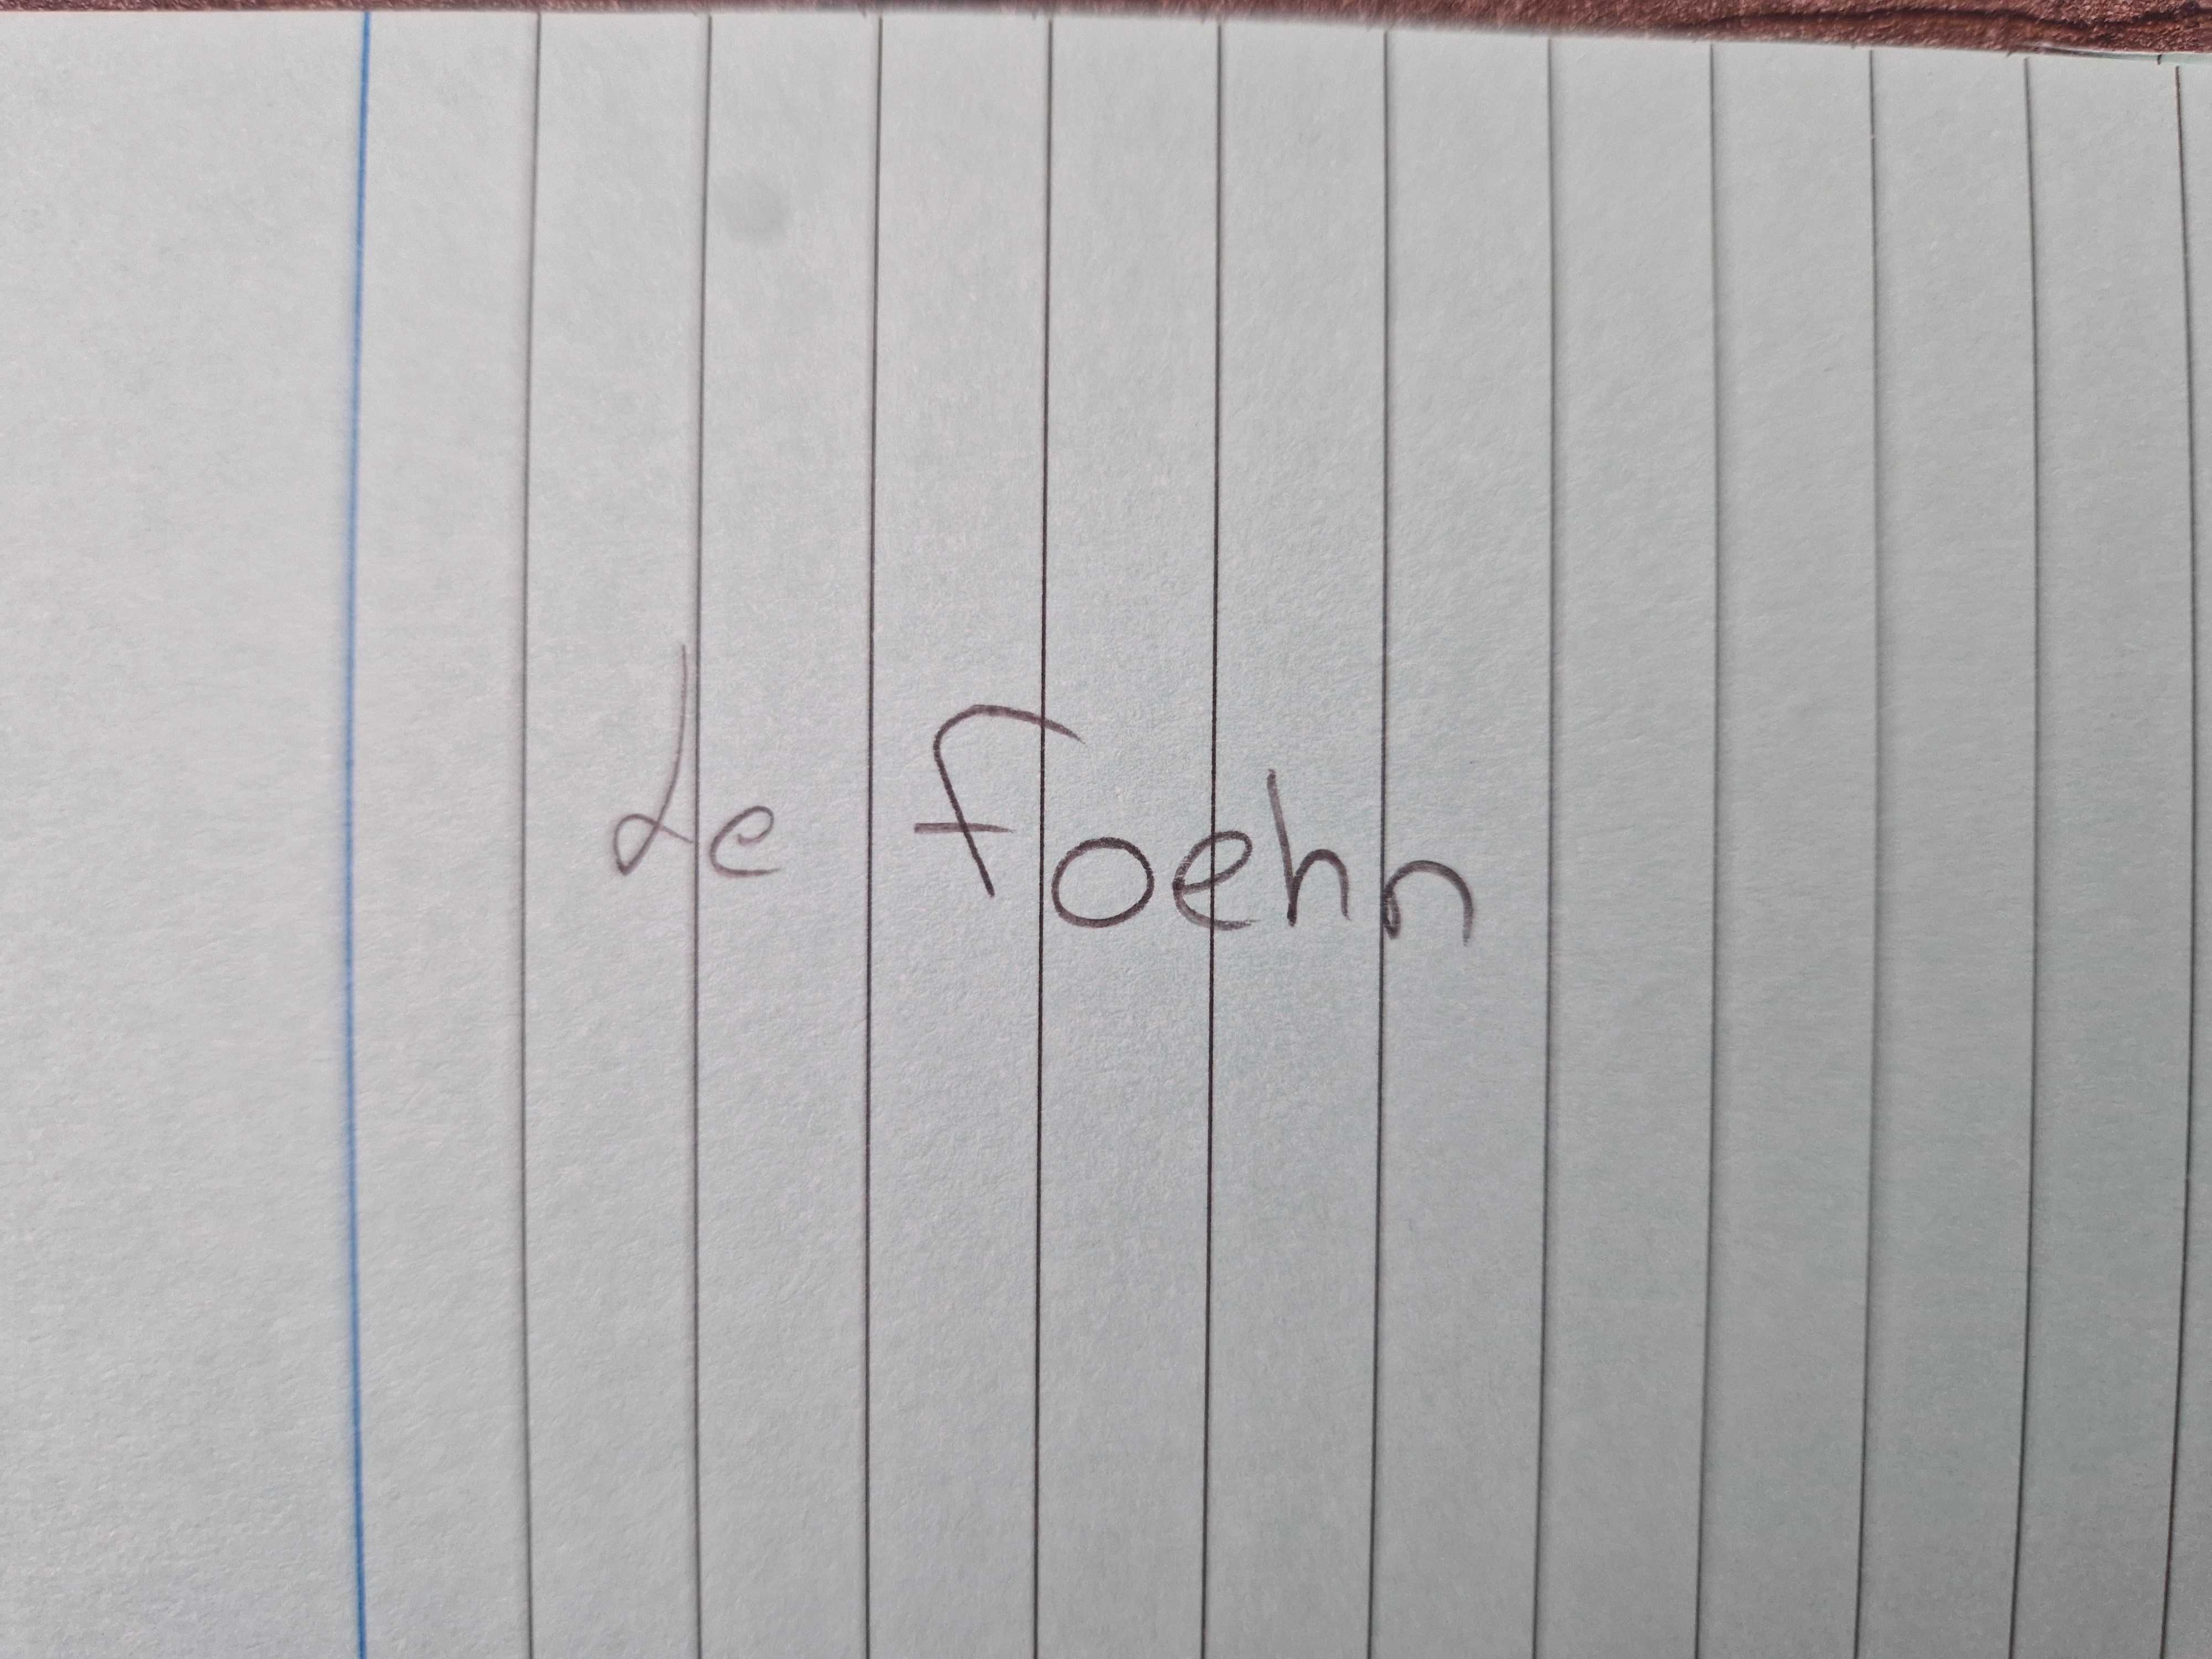 de foehn